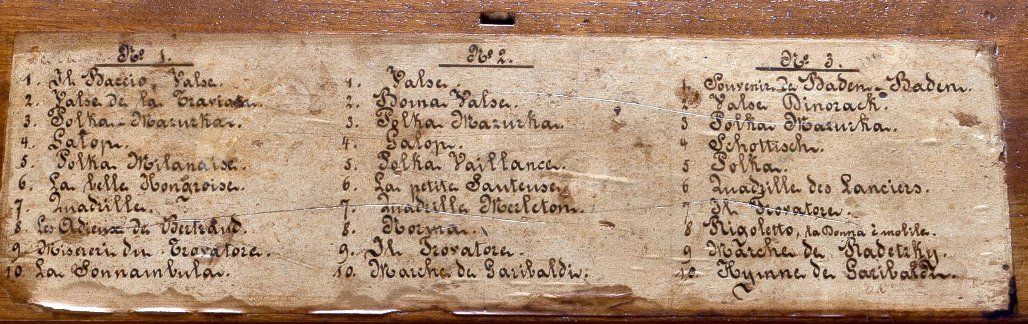 No 1.
1. Il Baccio, Valse.
2. Valse de la Traviata.
3. Polka-Mazurka.
4. Galop.
5. Polka Milanaise.
6. La belle Hongroise.
7. Quadrille.
8. Les Adieux de Bertrand.
9. Misereri du Trovatore.
10. La Sonnambula.
No 2.
1. Valse.
2. Homa Valse.
3. Polka Mazurka.
4. Galop.
5. Polka Vaillance.
6. La petite Sauteuse.
7. Quadrille Merleton.
8. Norma.
9. Il Trovatore.
10. Marche de Garibaldi.
No 3.
1. Souvenir de Baden-Baden.
2. Valse Dinorack.
3 Polka Mazurka.
4 Schottisch.
5 Polka.
6 Quadrille des Lanciers.
7 Il Trovatore.
8 Rigoletto, la Donna è mobile.
9 Marche de Radetzky.
10. Hymne de Garibaldi.